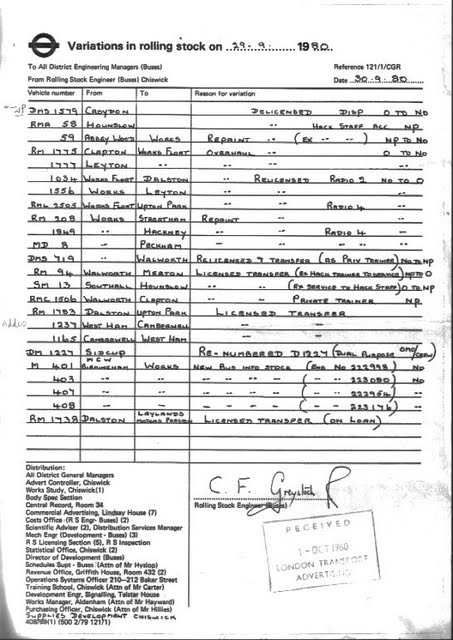 Variations in rolling stock on 29.9. 1980.
To All District Engineering Managers (Buses) Reference 121/1/CGR
From Rolling Stock Engineer (Buses) Chiswick Date 30.9.80
Vehicle number From To Reason for variation
DMS 1579 CROYDON DELICENSED DISP O TO NO
RMA 58 HOUNSLOW -- HACK STAFF ACC NP
59 ABBEY WOOD WORKS REPAINT (EX -- --) NP TO NO
RM 1775 CLAPTON WORKS FLOAT OVERHAUL -- O TO NO
1777 LEYTON -- -- --
1034 WORKS FLOAT DALSTON -- RELICENSED RADIO 2 NO TO O
1556 WORKS LEYTON -- -- --
RML 2505 WORKS FLOAT UPTON PARK -- -- RADIO 4 --
RM 208 WORKS STREATHAM REPAINT -- --
1849 -- HACKNEY -- -- RADIO 4 --
MD 8 -- PECKHAM -- -- --
DMS 719 -- WALWORTH RELICENSED & TRANSFER (AS PRIV TRAINER) NO TO NP
RM 94 WALWORTH MERTON LICENSED TRANSFER (EX HACK TRAINER TO SERVICE) NP TO O
SM 13 SOUTHALL HOUNSLOW -- -- (EX SERVICE TO HACK STAFF) O TO NP
RMC 1506 WALWORTH CLAPTON -- -- PRIVATE TRAINER NP
RM 1783 DALSTON UPTON PARK LICENSED TRANSFER
1237 WEST HAM CAMBERWELL -- --
1165 CAMBERWELL WEST HAM -- --
DM 1227 SIDCUP RE-NUMBERED D1227 (DUAL PURPOSE OMO/CREW)
M 401 MCW BIRMINGHAM WORKS NEW BUS INTO STOCK (ENG NO 222998) NO
403 -- -- -- -- -- (-- -- 223080) NO
407 -- -- -- -- -- (-- -- 222964) --
408 -- -- -- -- -- (-- -- 223176) --
RM 1738 DALSTON LEYLANDS MOTORS LICENSED TRANSFER (ON LOAN)
Distribution:
All District General Managers
Advert Controller, Chiswick
Works Study, Chiswick(1)
Body Spec Section
Central Record, Room 34
Commercial Advertising, Lindsay House (7)
Costs Office (R S Engr- Buses) (2)
Scientific Adviser (2), Distribution Services Manager
Mech Engr (Development - Buses) (3)
R S Licensing Section (5), R S Inspection
Statistical Office, Chiswick (2)
Director of Development (Buses)
Schedules Supt - Buses (Attn of Mr Hyslop)
Revenue Office, Griffith House, Room 432 (2)
Operations Systems Officer 210-212 Baker Street
Training School, Chiswick (Attn of Mr Carter)
Development Engr, Signalling, Telstar House
Works Manager, Aldenham (Attn of Mr Hayward)
Purchasing Officer, Chiswick (Attn of Mr Hilles)
SUPPLIES DEVELOPMENT CHISWICK
C. F.
Rolling Stock Engineer (Buses)
RECEIVED
1-OCT 1980
LONDON TRANSPORT
ADVERTISING